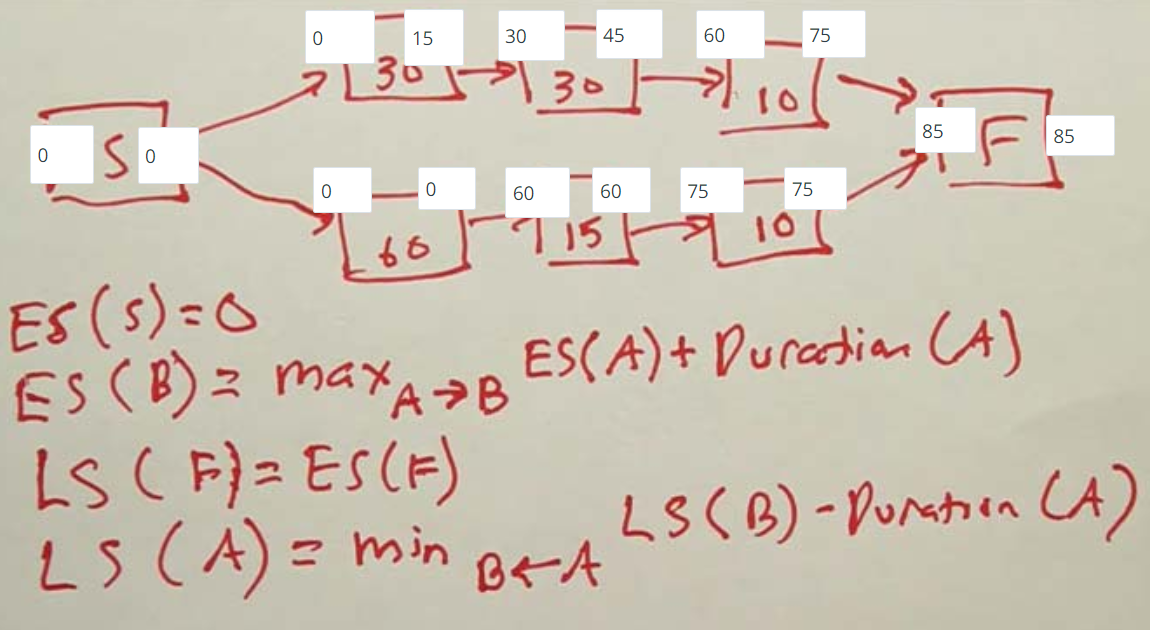 0 15 30 45 60 75
30 30 10
0 S 0 85 F 85
0 0 60 60 75 75
60 15 10
ES(S)=0
ES(B)= max A→B ES(A)+Duration(A)
LS(F)=ES(F)
LS(A)= min B←A LS(B)-Duration(A)